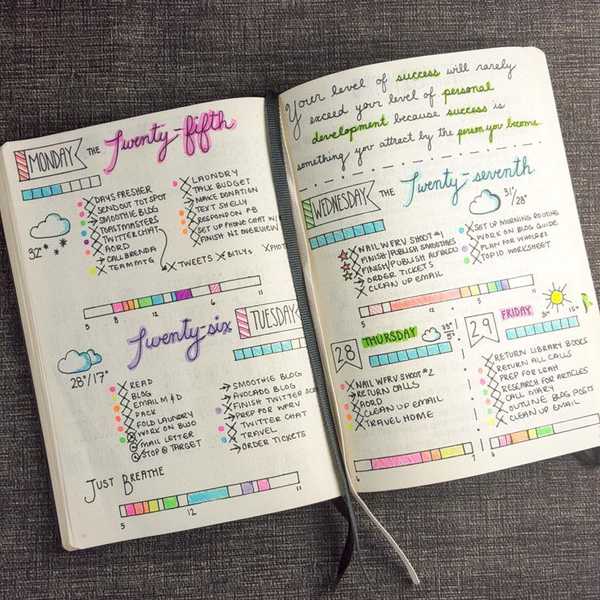 MONDAY THE Twenty-fifth
32°
X DAYS FRESHER
X SENDOUT TOT SPOT
→ SMOOTHIE BLOG
X TOASTMASTERS
X TWITTER CHAT
X AORD
→ CALL BRENDA
X TEAM MTG
X LAUNDRY
X TALK BUDGET
→ MAKE DONATION
X TEXT SHELLY
X RESPOND ON FB
X SET UP PHONE CHAT W/
X FINISH NI OVERVIEW
X TWEETS X BITLYS X PHOT
5 8 11 6 11
Twenty-six TUESDAY
28°/17°
X READ
X BLOG
X EMAIL
X PACK
X FOLD LAUNDRY
X WORK ON BUJO
X MAIL LETTER
X STOP @ TARGET
→ SMOOTHIE BLOG
→ AVOCADO BLOG
X FINISH TWITTER
→ PREP FOR WFRV
X TWITTER CHAT
X TRAVEL
→ ORDER TICKETS
JUST BREATHE
5 12 5 11
Your level of success will rarely
exceed your level of personal
development because success is
something you attract by the person you become.
WEDNESDAY THE Twenty-seventh
31°/28°
X NAIL WFRV SHOOT #1
X FINISH/PUBLISH SMOOTHIES
X FINISH/PUBLISH
→ ORDER TICKETS
X CLEAN UP EMAIL
X SET UP MORNING ROUTINE
X WORK ON BLOG GUIDE
X PLAN FOR
X TOPID WORKSHEET
5 8 12 5 8 11
28 THURSDAY
X NAIL WFRV SHOOT #2
→ RETURN CALLS
X AORD
X CLEAN UP EMAIL
X TRAVEL HOME
6 12 5 11
29 FRIDAY
X RETURN LIBRARY BOOKS
X RETURN ALL CALLS
X PREP FOR LEAH
X RESEARCH FOR ARTICLES
X CALL DIARY
X OUTLINE BLOG POSTS
X CLEAN UP EMAIL
6